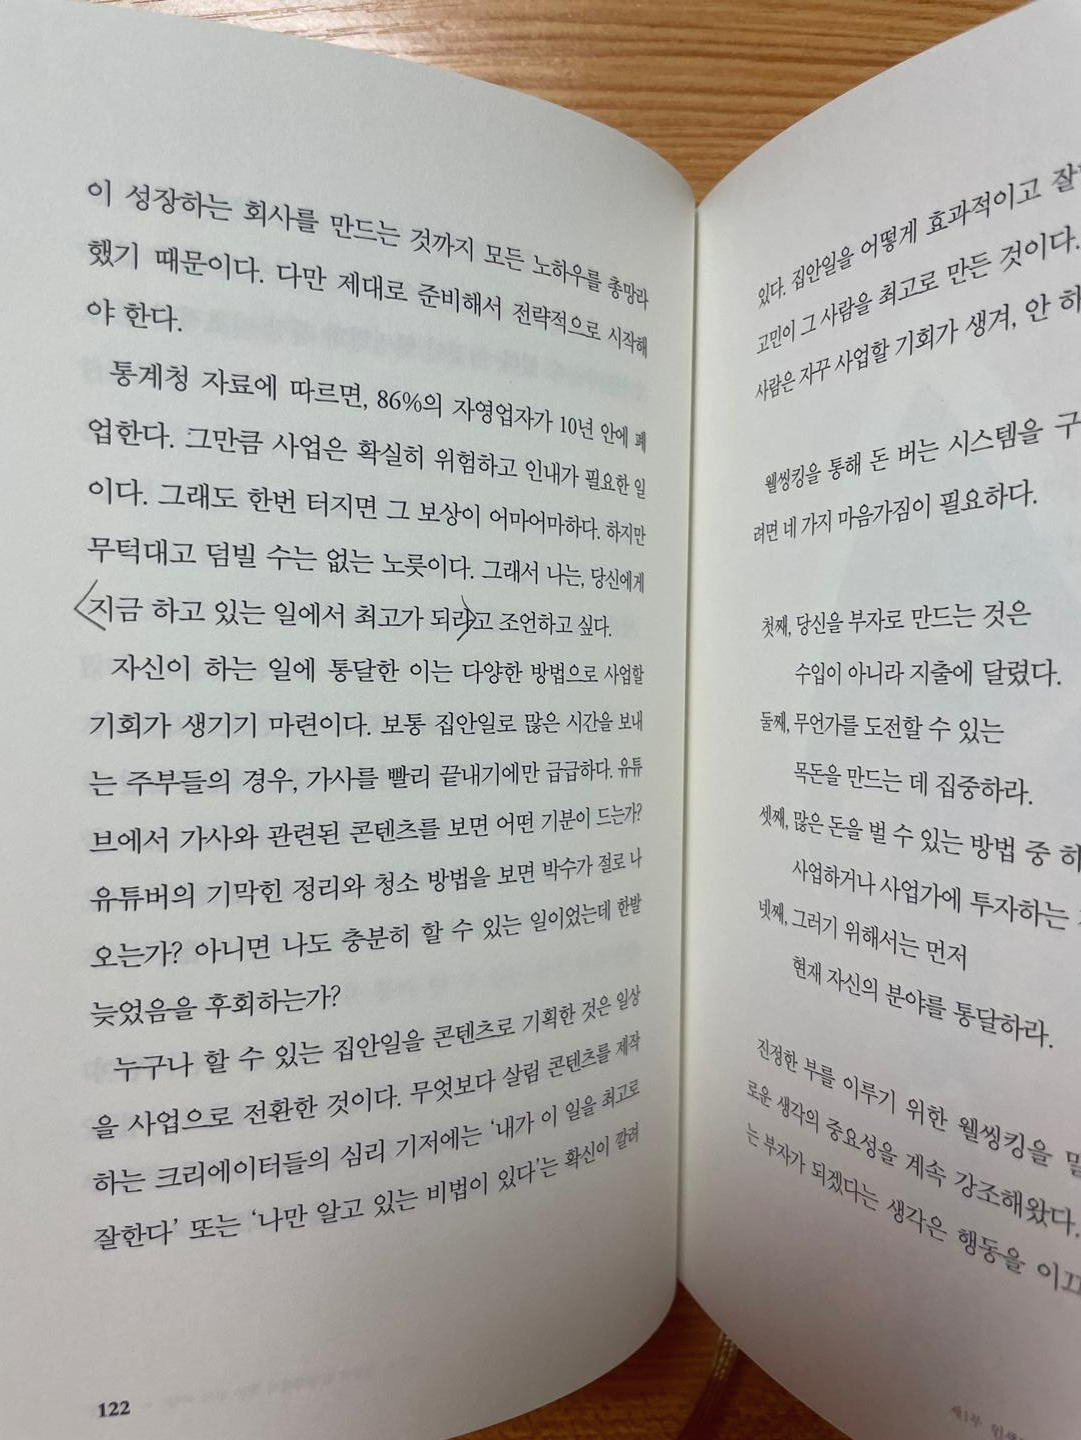 이 성장하는 회사를 만드는 것까지 모든 노하우를 총망라
했기 때문이다. 다만 제대로 준비해서 전략적으로 시작해
야 한다.
통계청 자료에 따르면, 86%의 자영업자가 10년 안에 폐
업한다. 그만큼 사업은 확실히 위험하고 인내가 필요한 일
이다. 그래도 한번 터지면 그 보상이 어마어마하다. 하지만
무턱대고 덤빌 수는 없는 노릇이다. 그래서 나는, 당신에게
지금 하고 있는 일에서 최고가 되라고 조언하고 싶다.
자신이 하는 일에 통달한 이는 다양한 방법으로 사업할
기회가 생기기 마련이다. 보통 집안일로 많은 시간을 보내
는 주부들의 경우, 가사를 빨리 끝내기에만 급급하다. 유튜
브에서 가사와 관련된 콘텐츠를 보면 어떤 기분이 드는가?
유튜버의 기막힌 정리와 청소 방법을 보면 박수가 절로 나
오는가? 아니면 나도 충분히 할 수 있는 일이었는데 한발
늦었음을 후회하는가?
누구나 할 수 있는 집안일을 콘텐츠로 기획한 것은 일상
을 사업으로 전환한 것이다. 무엇보다 살림 콘텐츠를 제작
하는 크리에이터들의 심리 기저에는 ‘내가 이 일을 최고로
잘한다’ 또는 ‘나만 알고 있는 비법이 있다’는 확신이 깔려
122
있다. 집안일을 어떻게 효과적이고
고민이 그 사람을 최고로 만든 것이다.
사람은 자꾸 사업할 기회가 생겨, 안
웰씽킹을 통해 돈 버는 시스템을
려면 네 가지 마음가짐이 필요하다.
첫째, 당신을 부자로 만드는 것은
수입이 아니라 지출에 달렸다.
둘째, 무언가를 도전할 수 있는
목돈을 만드는 데 집중하라.
셋째, 많은 돈을 벌 수 있는 방법 중
사업하거나 사업가에 투자하는
넷째, 그러기 위해서는 먼저
현재 자신의 분야를 통달하라.
진정한 부를 이루기 위한 웰씽킹을
로운 생각의 중요성을 계속 강조해왔다.
는 부자가 되겠다는 생각은 행동을
제1부